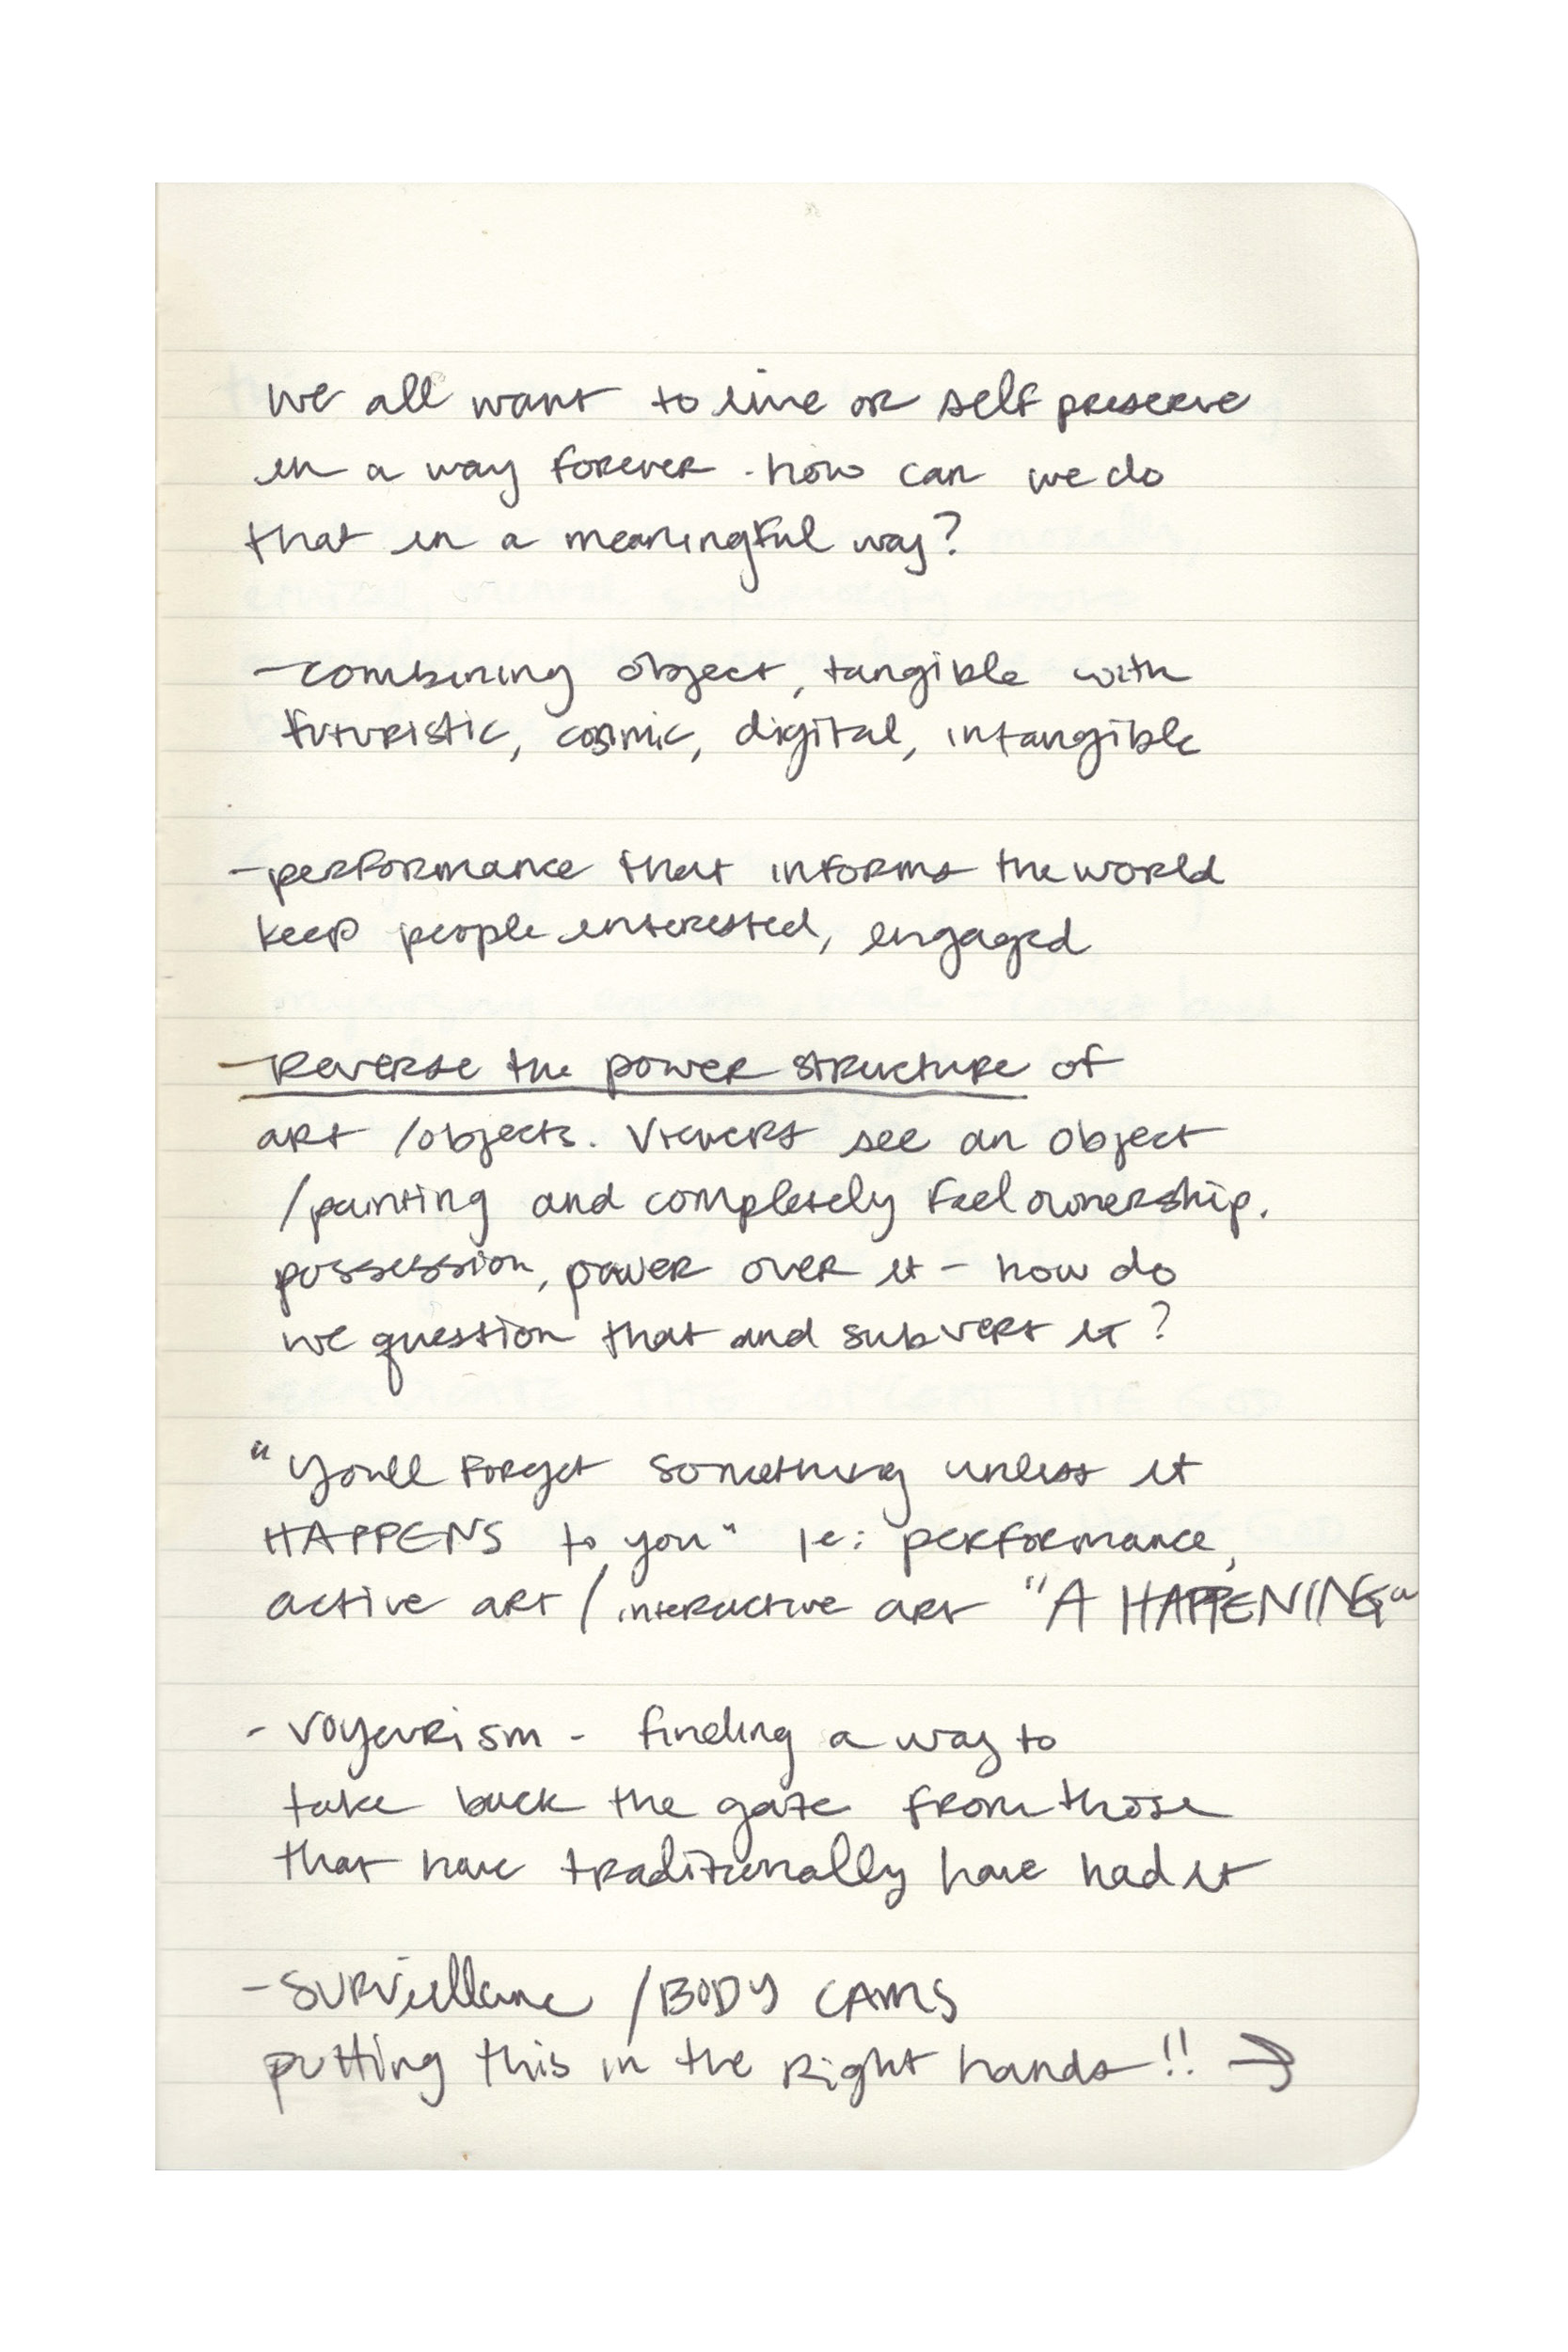 we all want to live or self preserve
in a way forever. how can we do
that in a meaningful way?
- combining object, tangible with
futuristic, cosmic, digital, intangible
- performance that informs the world
keep people interested, engaged
- Reverse the power structure of
art /objects. Viewers see an object
/painting and completely feel ownership.
possession, power over it - how do
we question that and subvert it?
"you'll forget something unless it
HAPPENS to you" ie: performance,
active art / interactive art "A HAPPENING"
- voyeurism - finding a way to
take back the gaze from those
that have traditionally have had it
- Surveillance / BODY CAMS
putting this in the right hands!! →